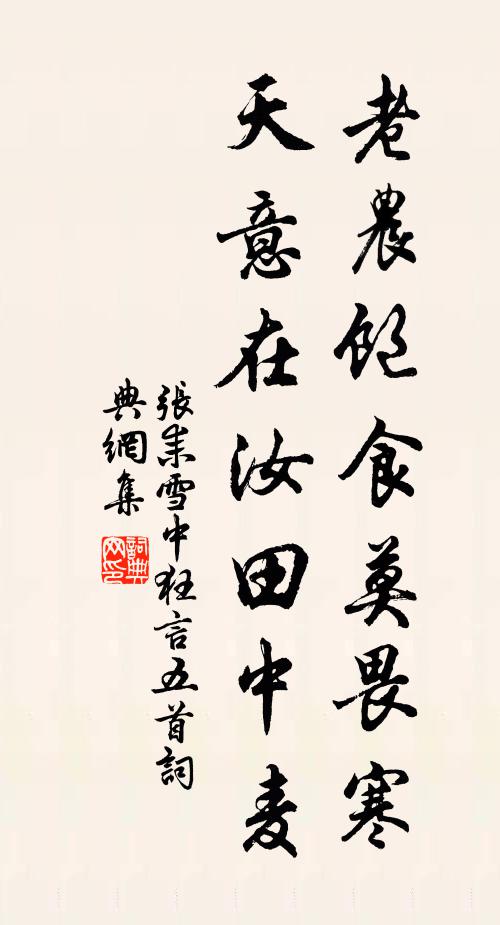 老農飽食莫畏寒
天意在汝田中麦
張耒雪中狂言五首詞
典網集
詞典
网印